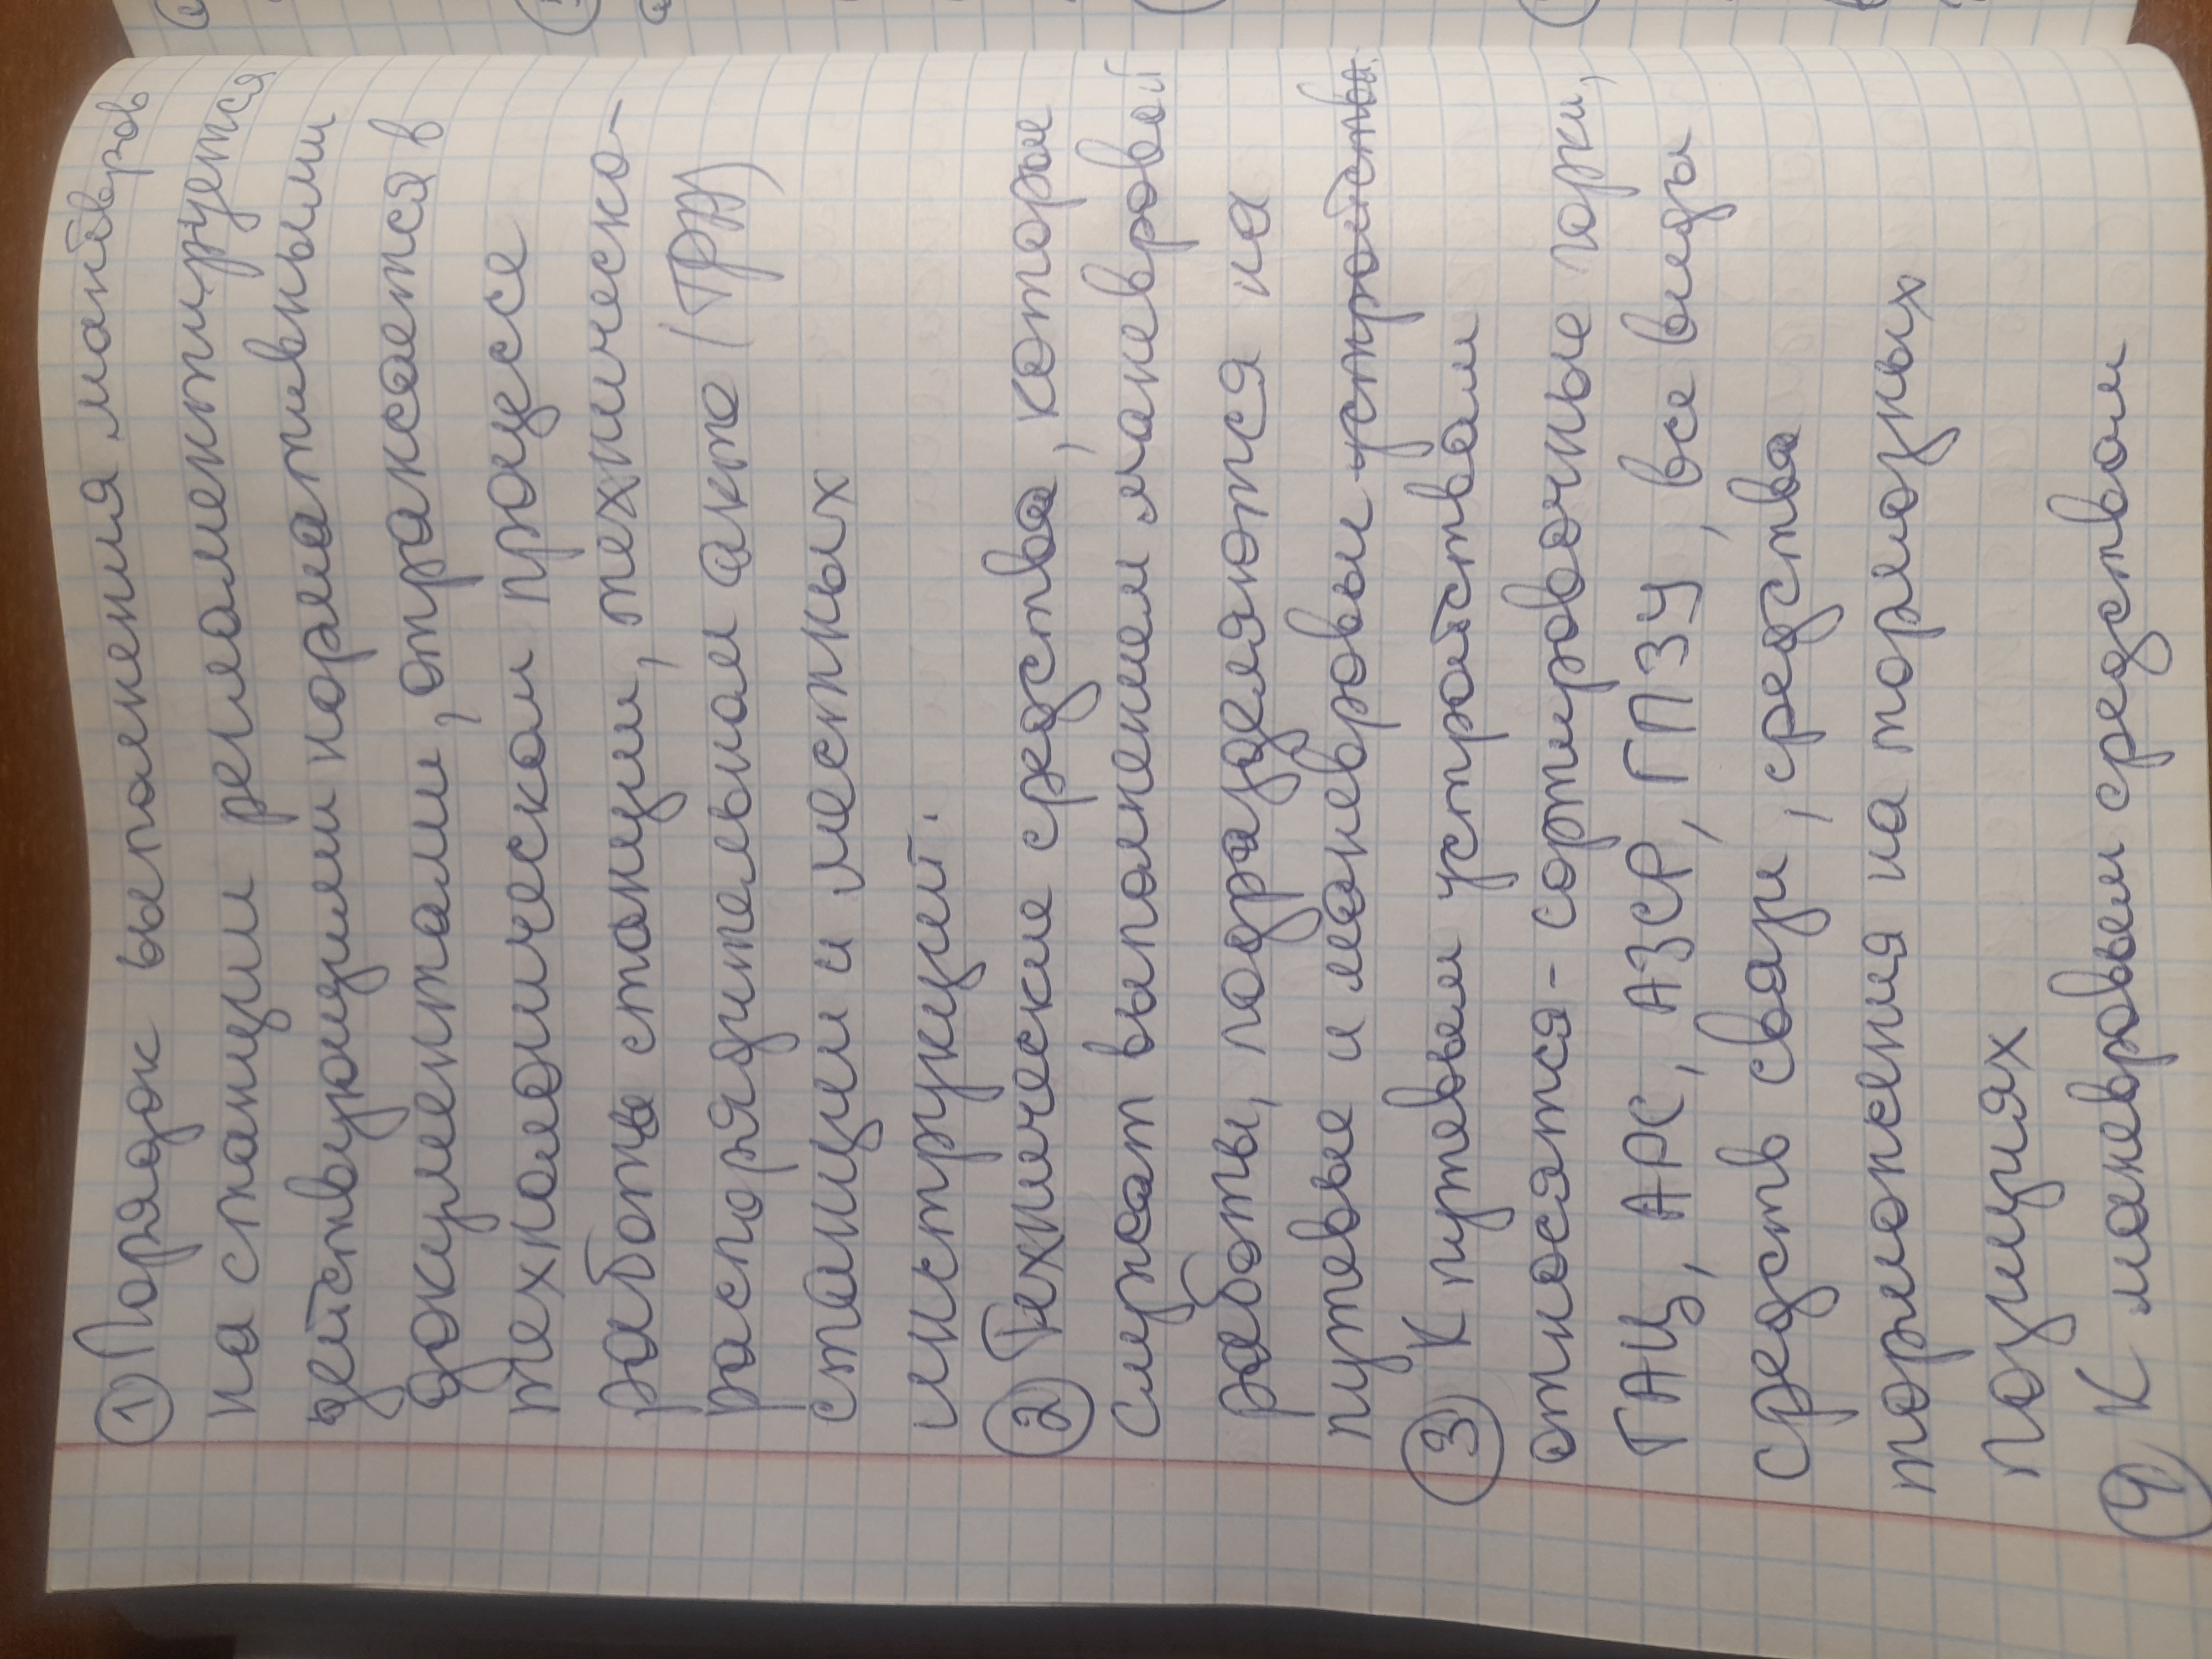 ① Порядок выполнения манёвров
на станции регламентируется
действующими нормативными
документами, отражается в
технологическом процессе
работы станции, техническо-
распорядительном акте (ТРА)
станции и местных
инструкций.
② Технические средства, которые
служат выполнением маневровой
работы, подразделяются на
путевые и маневровые устройства.
③ К путевым устройствам
относятся - сортировочные горки,
ГАЦ, АРС, АЗСР, ГПЗУ, все виды
средств связи, средства
торможения на тормозных
позициях
④ К маневровым средствам